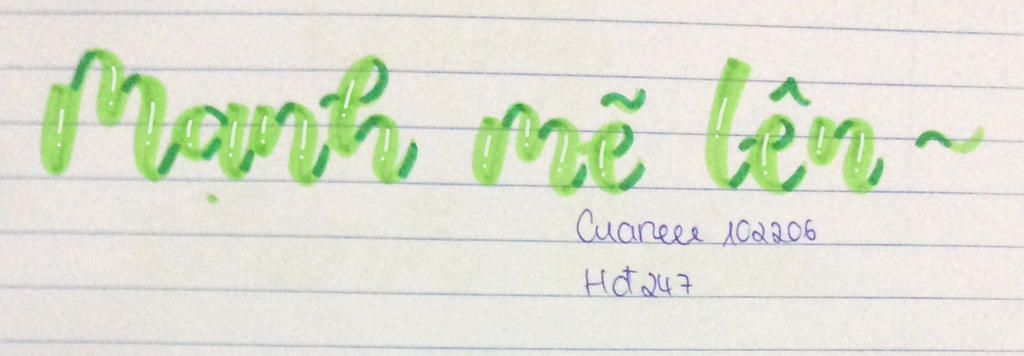 Mạnh mẽ lên ~
Cuaneee 102206
Hđ247